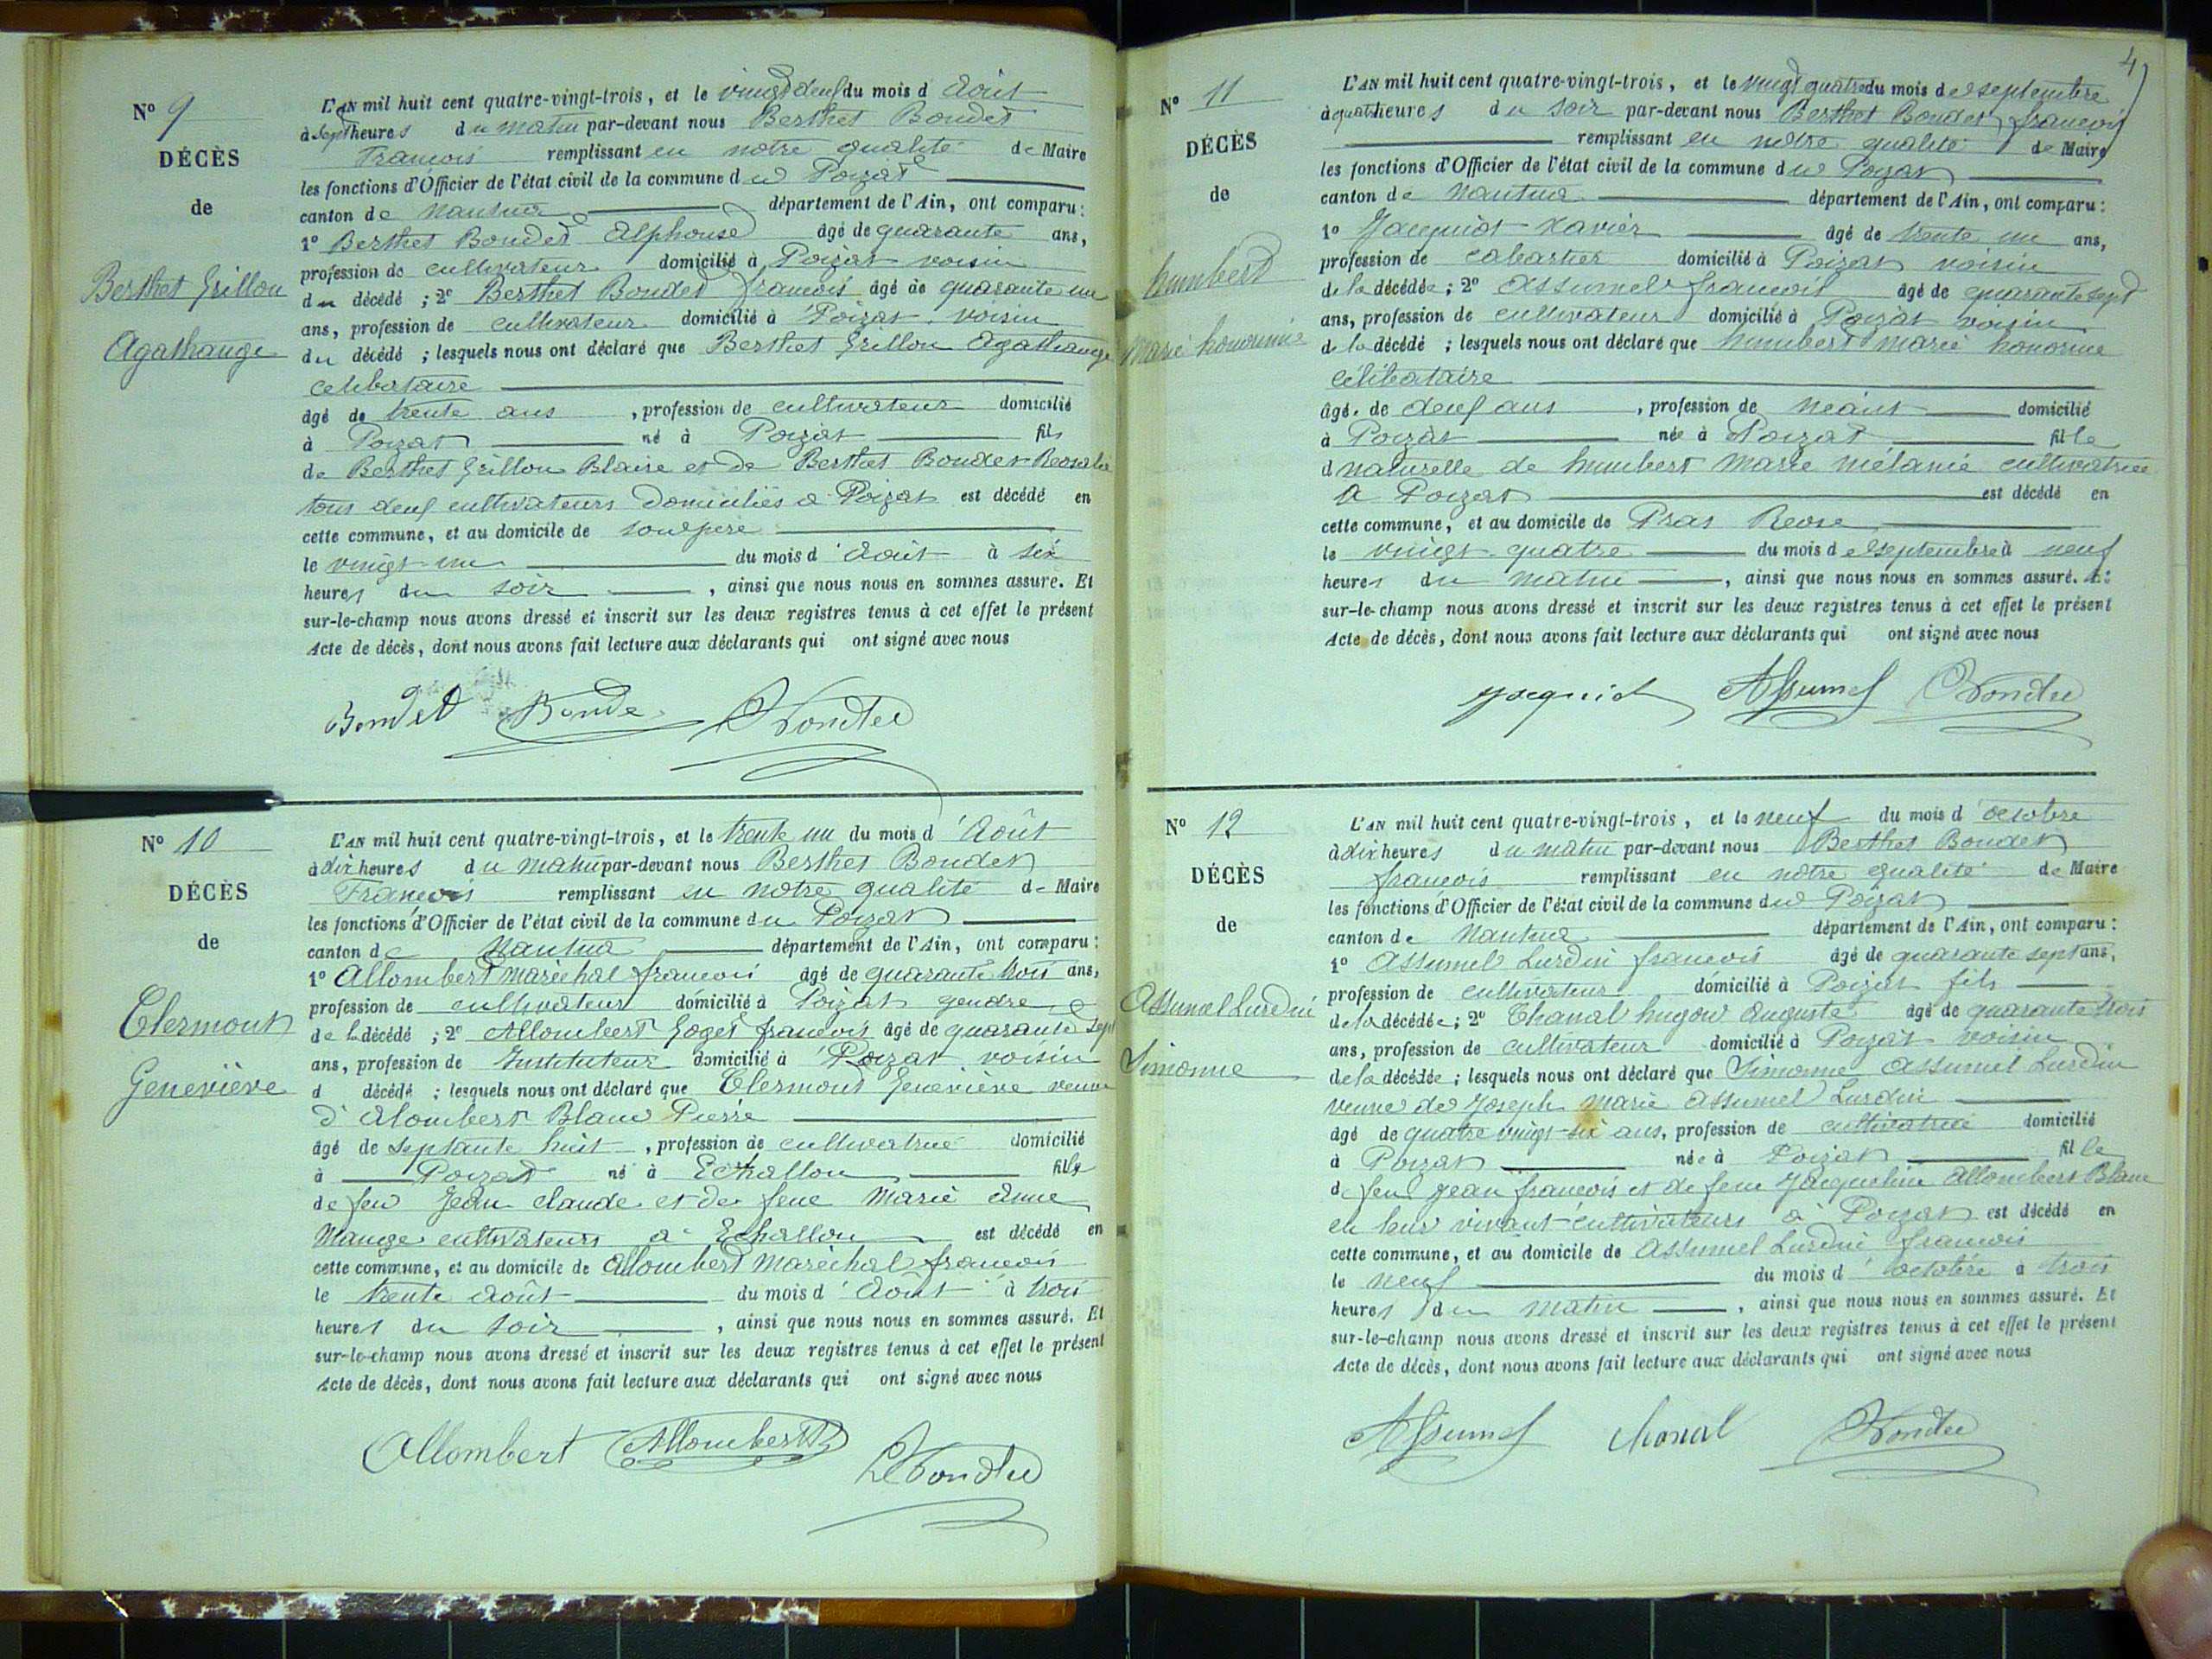 N° 9
DÉCÈS
de
Berthet Grillon
Agathange
L'AN mil huit cent quatre-vingt-trois, et le vingt deux du mois d Août
à sept heures du matin par-devant nous Berthet Bondet
Francois remplissant en notre qualité de Maire
les fonctions d'Officier de l'état civil de la commune du Poizat
canton de Nantua département de l'Ain, ont comparu :
1° Berthet Bondet Alphonse âgé de quarante ans,
profession de cultivateur domicilié à Poizat voisin
du décédé ; 2° Berthet Bondet francois âgé de quarante un
ans, profession de cultivateur domicilié à Poizat voisin
du décédé ; lesquels nous ont déclaré que Berthet Grillon Agathange
celibataire
âgé de trente ans, profession de cultivateur domicilié
à Poizat né à Poizat fils
de Berthet Grillon Blaise et de Berthet Bondet Reosalie
tous deux cultivateurs domiciliés a Poizat est décédé en
cette commune, et au domicile de son père
le vingt un du mois d'Août à six
heures du soir, ainsi que nous nous en sommes assuré. Et
sur-le-champ nous avons dressé et inscrit sur les deux registres tenus à cet effet le présent
Acte de décès, dont nous avons fait lecture aux déclarants qui ont signé avec nous
Bondet Bonde
N° 10
DÉCÈS
de
Clermont
Geneviève
L'AN mil huit cent quatre-vingt-trois, et le trente un du mois d'Août
à dix heures du matin par-devant nous Berthet Bondet
Francois remplissant en notre qualité de Maire
les fonctions d'Officier de l'état civil de la commune du Poizat
canton de Nantua département de l'Ain, ont comparu :
1° Allombert maréchal francois âgé de quarante trois ans,
profession de cultivateur domicilié à Poizat gendre
de la décédé ; 2° Allombert Goget francois âgé de quarante sept
ans, profession de Instituteur domicilié à Poizat voisin
d décédé ; lesquels nous ont déclaré que Clermont Geneviève veuve
d'Alombert Blanc Pierre
âgé de septante huit, profession de cultivatrice domicilié
à Poizat né à Echallon fille
de feu Jean claude et de feue Marie Anne
Mange cultivateurs a Echallon est décédé en
cette commune, et au domicile de Allombert Maréchal francois
le trente août du mois d'Août à trois
heures du soir, ainsi que nous nous en sommes assuré. Et
sur-le-champ nous avons dressé et inscrit sur les deux registres tenus à cet effet le présent
Acte de décès, dont nous avons fait lecture aux déclarants qui ont signé avec nous
Allombert Allombert
4
N° 11
DÉCÈS
de
humbert
Marie honorine
L'AN mil huit cent quatre-vingt-trois, et le vingt quatre du mois de septembre
à quatre heures du soir par-devant nous Berthet Bondet francois
remplissant en notre qualité de Maire
les fonctions d'Officier de l'état civil de la commune du Poizat
canton de Nantua département de l'Ain, ont comparu :
1° Jacquiot Xavier âgé de trente un ans,
profession de cabartier domicilié à Poizat voisin
de la décédée ; 2° Assumel francois âgé de quarante sept
ans, profession de cultivateur domicilié à Poizat voisin
de la décédé ; lesquels nous ont déclaré que humbert marie honorine
célibataire
âgé de deux ans, profession de néant domicilié
à Poizat née à Poizat fille
d naturelle de humbert Marie mélanie cultivatrice
a Poizat est décédé en
cette commune, et au domicile de Pras Reose
le vingt quatre du mois de septembre à neuf
heures du matin, ainsi que nous nous en sommes assuré. Et
sur-le-champ nous avons dressé et inscrit sur les deux registres tenus à cet effet le présent
Acte de décès, dont nous avons fait lecture aux déclarants qui ont signé avec nous
Assumel
N° 12
DÉCÈS
de
Assumel Lurdin
Simonne
L'AN mil huit cent quatre-vingt-trois, et le neuf du mois d'octobre
à dix heures du matin par-devant nous Berthet Bondet
francois remplissant en notre qualité de Maire
les fonctions d'Officier de l'état civil de la commune du Poizat
canton de Nantua département de l'Ain, ont comparu :
1° Assumel Lurdin francois âgé de quarante sept ans,
profession de cultivateur domicilié à Poizat fils
de la décédée ; 2° Chanal hugon Auguste âgé de quarante trois
ans, profession de cultivateur domicilié à Poizat voisin
de la décédée ; lesquels nous ont déclaré que Simonne Assumel Lurdin
veuve de Joseph Marie Assumel Lurdin
âgé de quatre vingt six ans, profession de cultivatrice domicilié
à Poizat née à Poizat fille
de feu jean francois et de feue Jacqueline Allombert Blanc
en leur vivant cultivateurs a Poizat est décédé en
cette commune, et au domicile de Assumel Lurdin francois
le neuf du mois d'octobre à trois
heures du matin, ainsi que nous nous en sommes assuré. Et
sur-le-champ nous avons dressé et inscrit sur les deux registres tenus à cet effet le présent
Acte de décès, dont nous avons fait lecture aux déclarants qui ont signé avec nous
Assumel Chanal